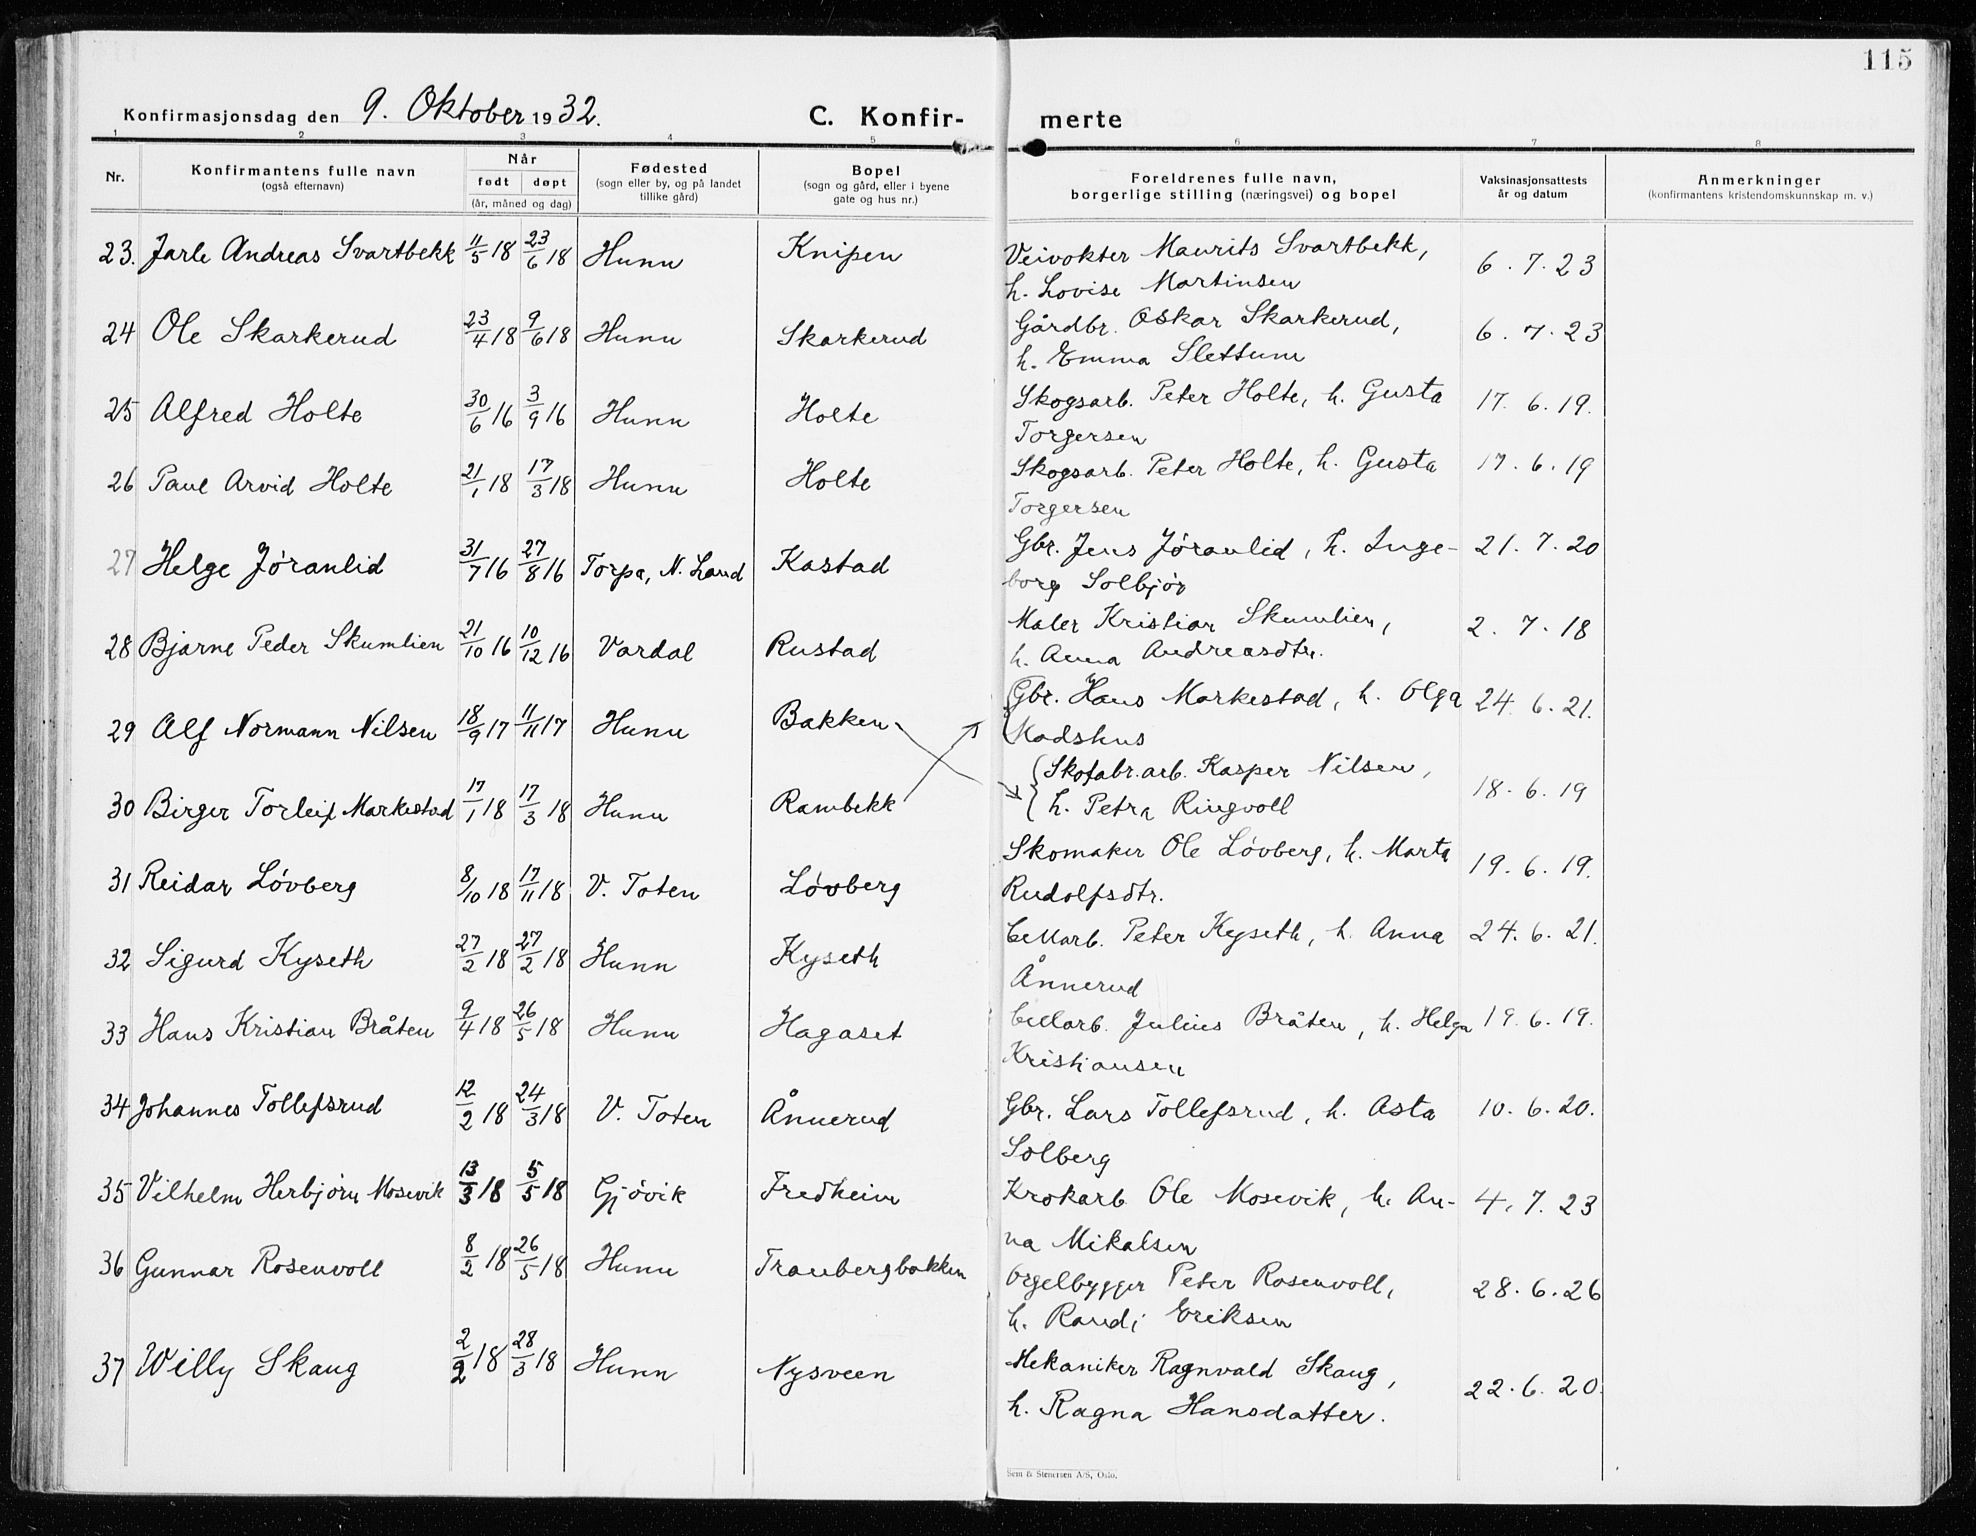 115
Konfirmasjonsdag den 9. Oktober 1932. C. Konfir- merte
1 2 3 4 5 6 7 8
Nr. Konfirmantens fulle navn (også efternavn) Når født døpt (år, måned og dag) Fødested (sogn eller by, og på landet tillike gård) Bopel (sogn og gård, eller i byene gate og hus nr.) Foreldrenes fulle navn, borgerlige stilling (næringsvei) og bopel Vaksinasjonsattests år og datum Anmerkninger (konfirmantens kristendomskunnskap m. v.)
23. Jarle Andreas Svartbekk 11/5 18 23/6 18 Hunn Knipen Veivokter Maurits Svartbekk, 6. 7. 23
h. Lovise Martinsen
24 Ole Skarkerud 23/4 18 9/6 18 Hunn Skarkerud Gårdbr. Oskar Skarkerud, 6. 7. 23
h. Emma Slettum
25 Alfred Holte 30/6 16 3/9 16 Hunn Holte Skogsarb. Peter Holte, h. Gusta 17. 6. 19.
Torgersen
26 Paul Arvid Holte 21/1 18 17/3 18 Hunn Holte Skogsarb. Peter Holte, h. Gusta 17. 6. 19
Torgersen
27 Helge Jøranlid 31/7 16 27/8 16 Torpa, N. Land Kastad Gbr. Jens Jøranlid, h. Inge- 21. 7. 20
borg Solbjør
28 Bjarne Peder Skumlien 21/10 16 10/12 16 Vardal Rustad Maler Kristian Skumlien, 2. 7. 18
h. Anna Andreasdtr.
29 Alf Normann Nilsen 18/9 17 11/11 17 Hunn Bakken Gbr. Hans Markestad, h. Olga 24. 6. 21.
Madshus
30 Birger Torleif Markestad 17/1 18 17/3 18 Hunn Rambekk Skofabr.arb. Kasper Nilsen, 18. 6. 19
h. Petra Ringvoll
31 Reidar Lövberg 8/10 18 17/11 18 V. Toten Lövberg Skomaker Ole Lövberg, h. Marta 19. 6. 19.
Rudolfsdtr.
32 Sigurd Kyseth 27/2 18 27/2 18 Hunn Kyseth Cellarb. Peter Kyseth, h. Anna 24. 6. 21.
Ånnerud
33 Hans Kristian Bråten 9/4 18 26/5 18 Hunn Hagaset Cellarb. Julius Bråten, h. Helga 19. 6. 19.
Kristiansen
34 Johannes Tollefsrud 12/2 18 24/3 18 V. Toten Ånnerud Gbr. Lars Tollefsrud, h. Asta 10. 6. 20.
Solberg
35 Vilhelm Herbjørn Mosevik 13/3 18 5/5 18 Gjövik Fredheim Krokarb Ole Mosevik, h. An- 4. 7. 23
na Mikalsen
36 Gunnar Rosenvoll 8/2 18 26/5 18 Hunn Tranbergbakken Orgelbygger Peter Rosenvoll, 28. 6. 26
h. Randi Eriksen
37 Willy Skaug 2/2 18 28/3 18 Hunn Nysveen Mekaniker Ragnvald Skaug, 22. 6. 20.
h. Ragna Hansdatter.
Sem & Stenersen A/S, Oslo.